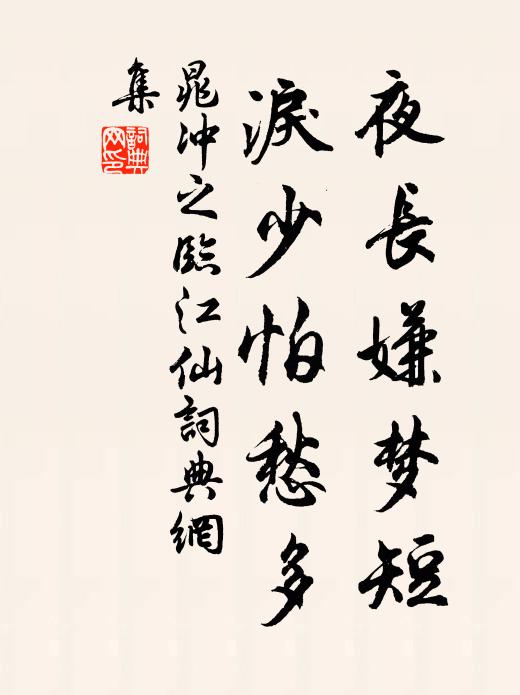 夜長嫌梦短
淚少怕愁多
晁冲之臨江仙詞典網
集
詞典網印